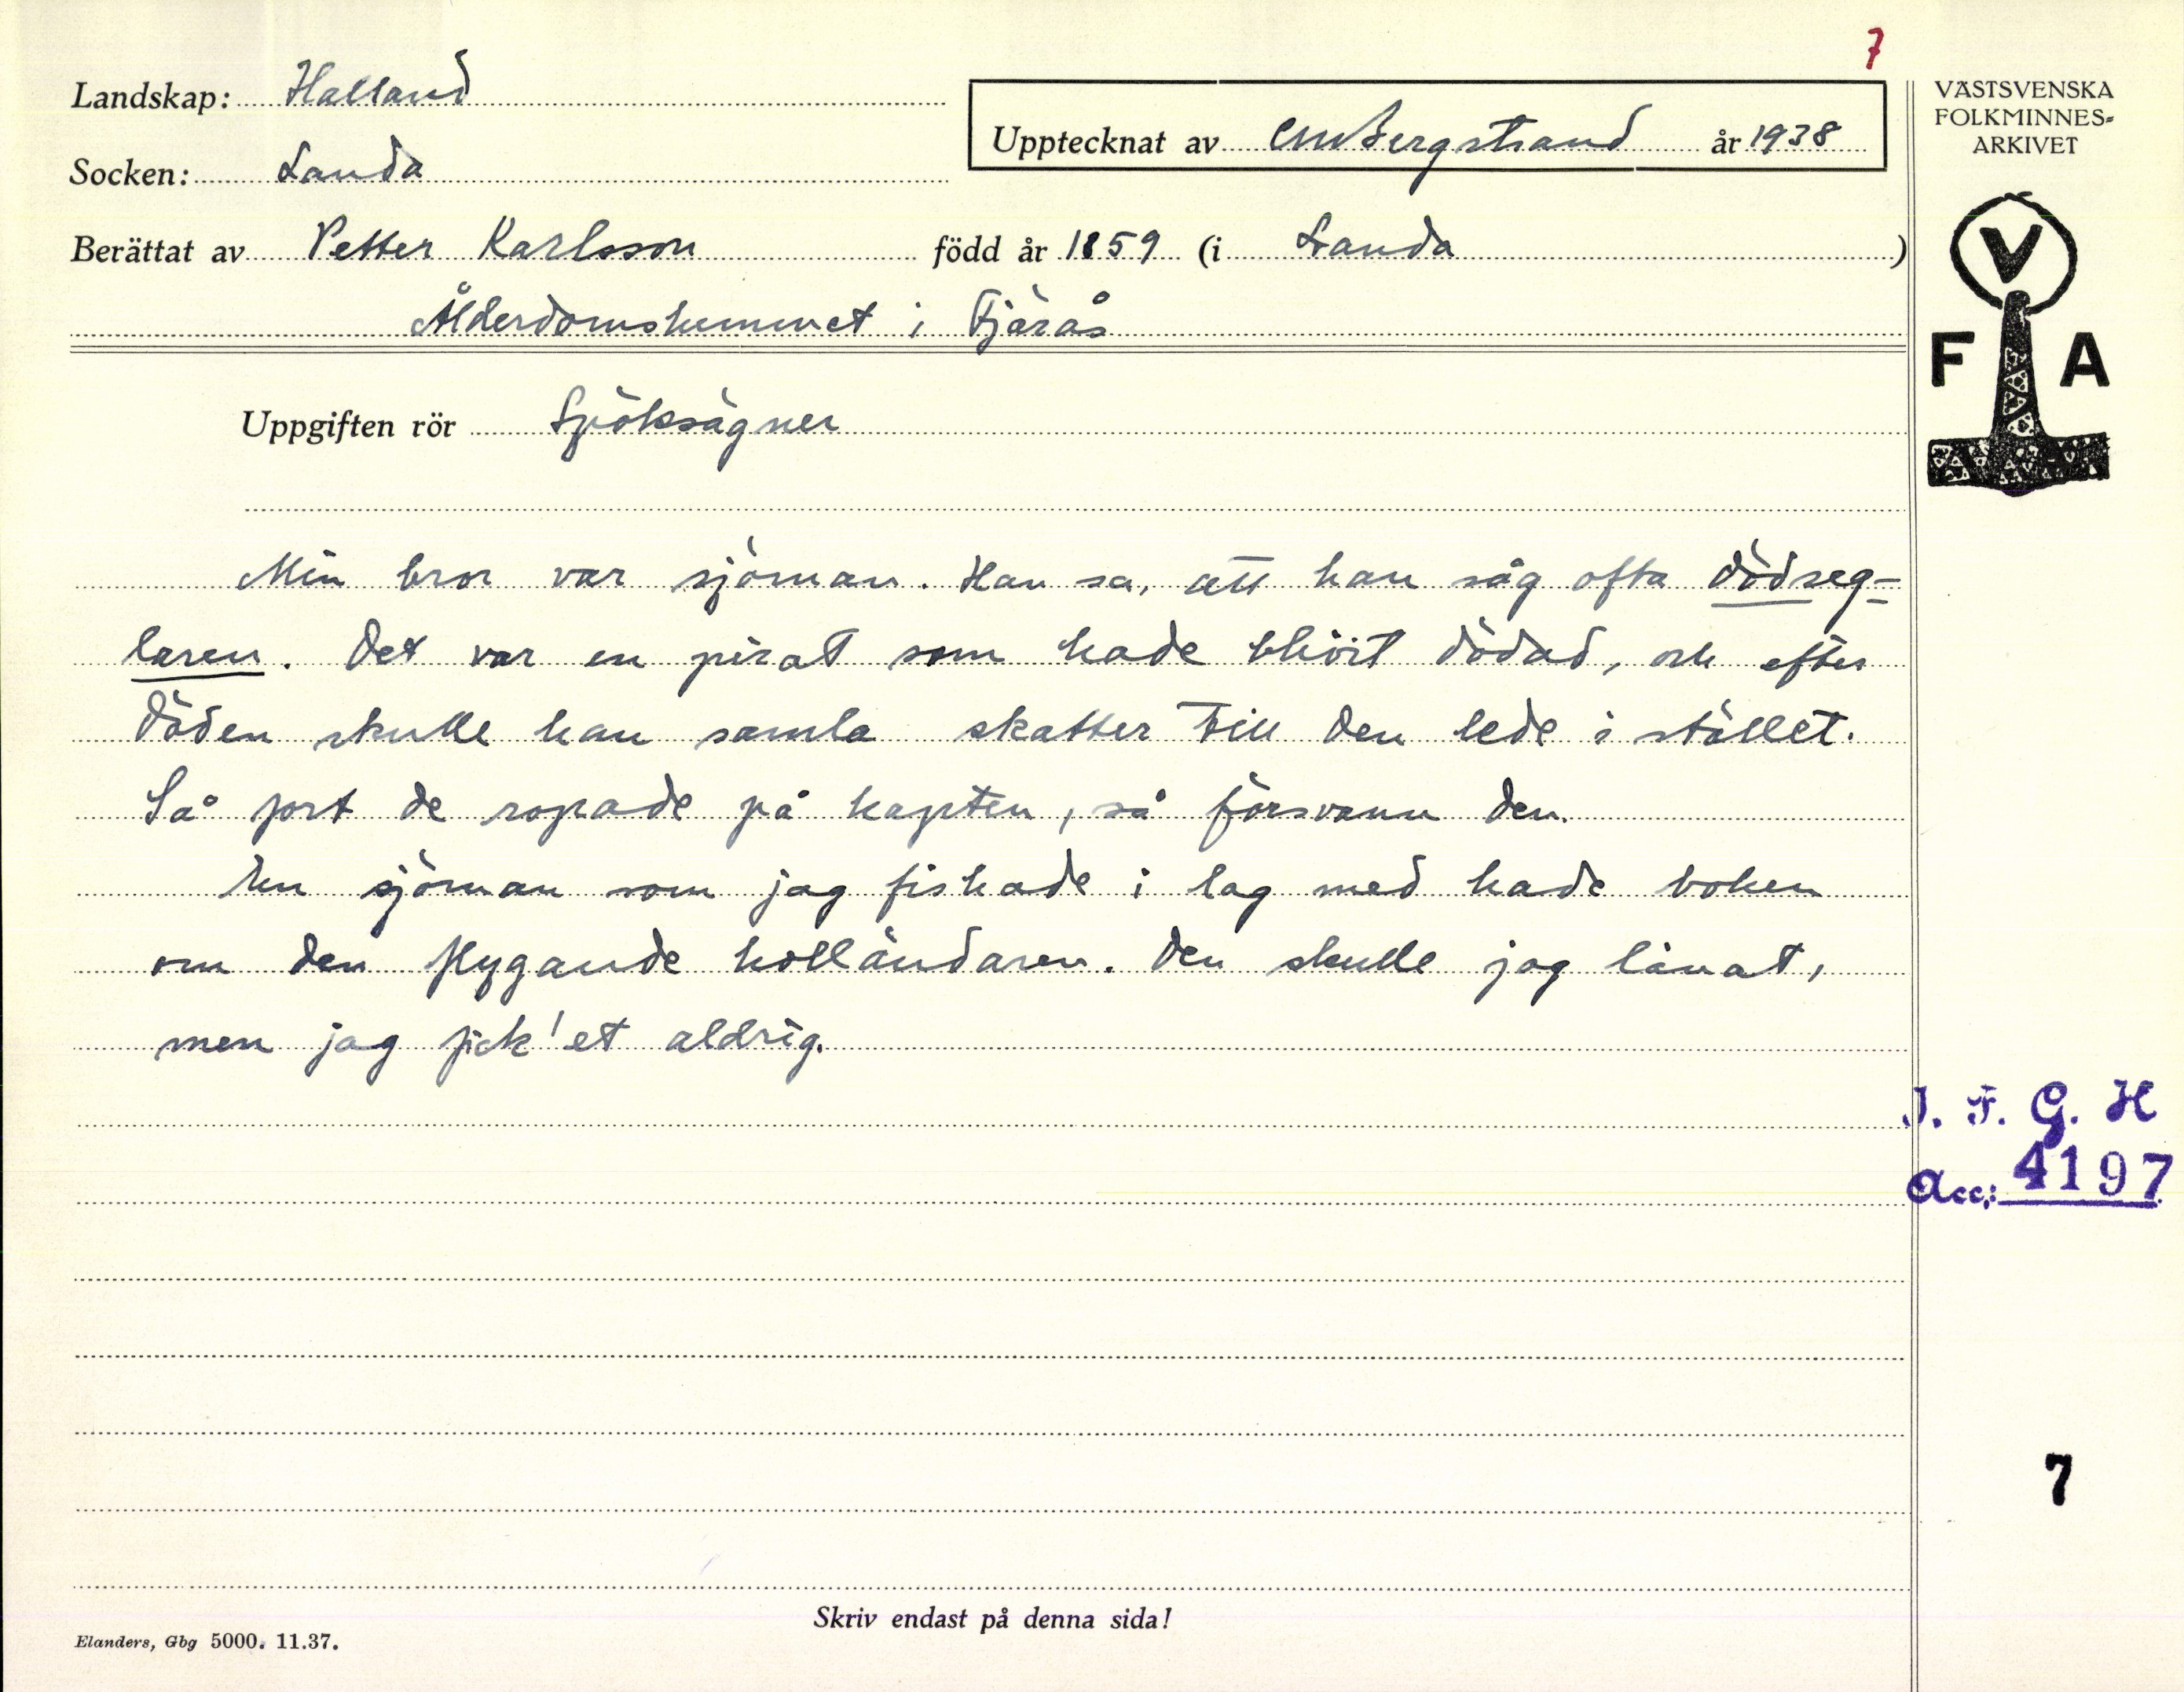 7
Landskap: Halland
Upptecknat av CMBergstrand år 1938
Socken: Landa
Berättat av Petter Karlsson född år 1859 (i Landa)
Ålderdomshemmet i Fjärås
VÄSTSVENSKA
FOLKMINNES-
ARKIVET
V
F A
Uppgiften rör Spöksägner
Min bror var sjöman. Han sa, att han såg ofta dödseg-
laren. Det var en pirat som hade blivit dödad, och efter
döden skulle han samla skatter till den lede i stället.
Så fort de ropade på kapten, så försvann den.
En sjöman som jag fiskade i lag med hade boken
om den flygande holländaren. Den skulle jag lånat,
men jag fick'et aldrig.
I. F. G. H
Acc: 4197
7
Skriv endast på denna sida!
Elanders, Gbg 5000. 11.37.